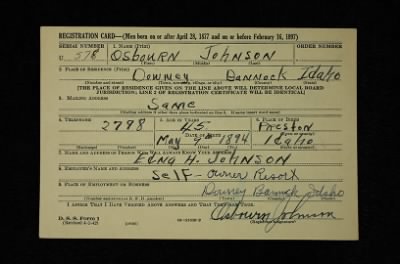 REGISTRATION CARD—(Men born on or after April 28, 1877 and on or before February 16, 1897)
SERIAL NUMBER 1. NAME (Print) ORDER NUMBER
U 578 OSBOURN JOHNSON
2. PLACE OF RESIDENCE (Print)
Downey Bannock Idaho
(Number and street) (Town, township, village, or city) (County) (State)
[THE PLACE OF RESIDENCE GIVEN ON THE LINE ABOVE WILL DETERMINE LOCAL BOARD
JURISDICTION; LINE 2 OF REGISTRATION CERTIFICATE WILL BE IDENTICAL]
3. MAILING ADDRESS
Same
4. TELEPHONE 5. AGE IN YEARS 6. PLACE OF BIRTH
2798 45 Preston
DATE OF BIRTH
May 1894 Idaho
7. NAME AND ADDRESS OF PERSON WHO WILL ALWAYS KNOW YOUR ADDRESS
EDNA H. JOHNSON
8. EMPLOYER'S NAME AND ADDRESS
Self - Owner Resort
9. PLACE OF EMPLOYMENT OR BUSINESS
Downey Bannock Idaho
I AFFIRM THAT I HAVE VERIFIED ABOVE ANSWERS AND THAT THEY ARE TRUE.
D. S. S. Form 1 Osbourn Johnson